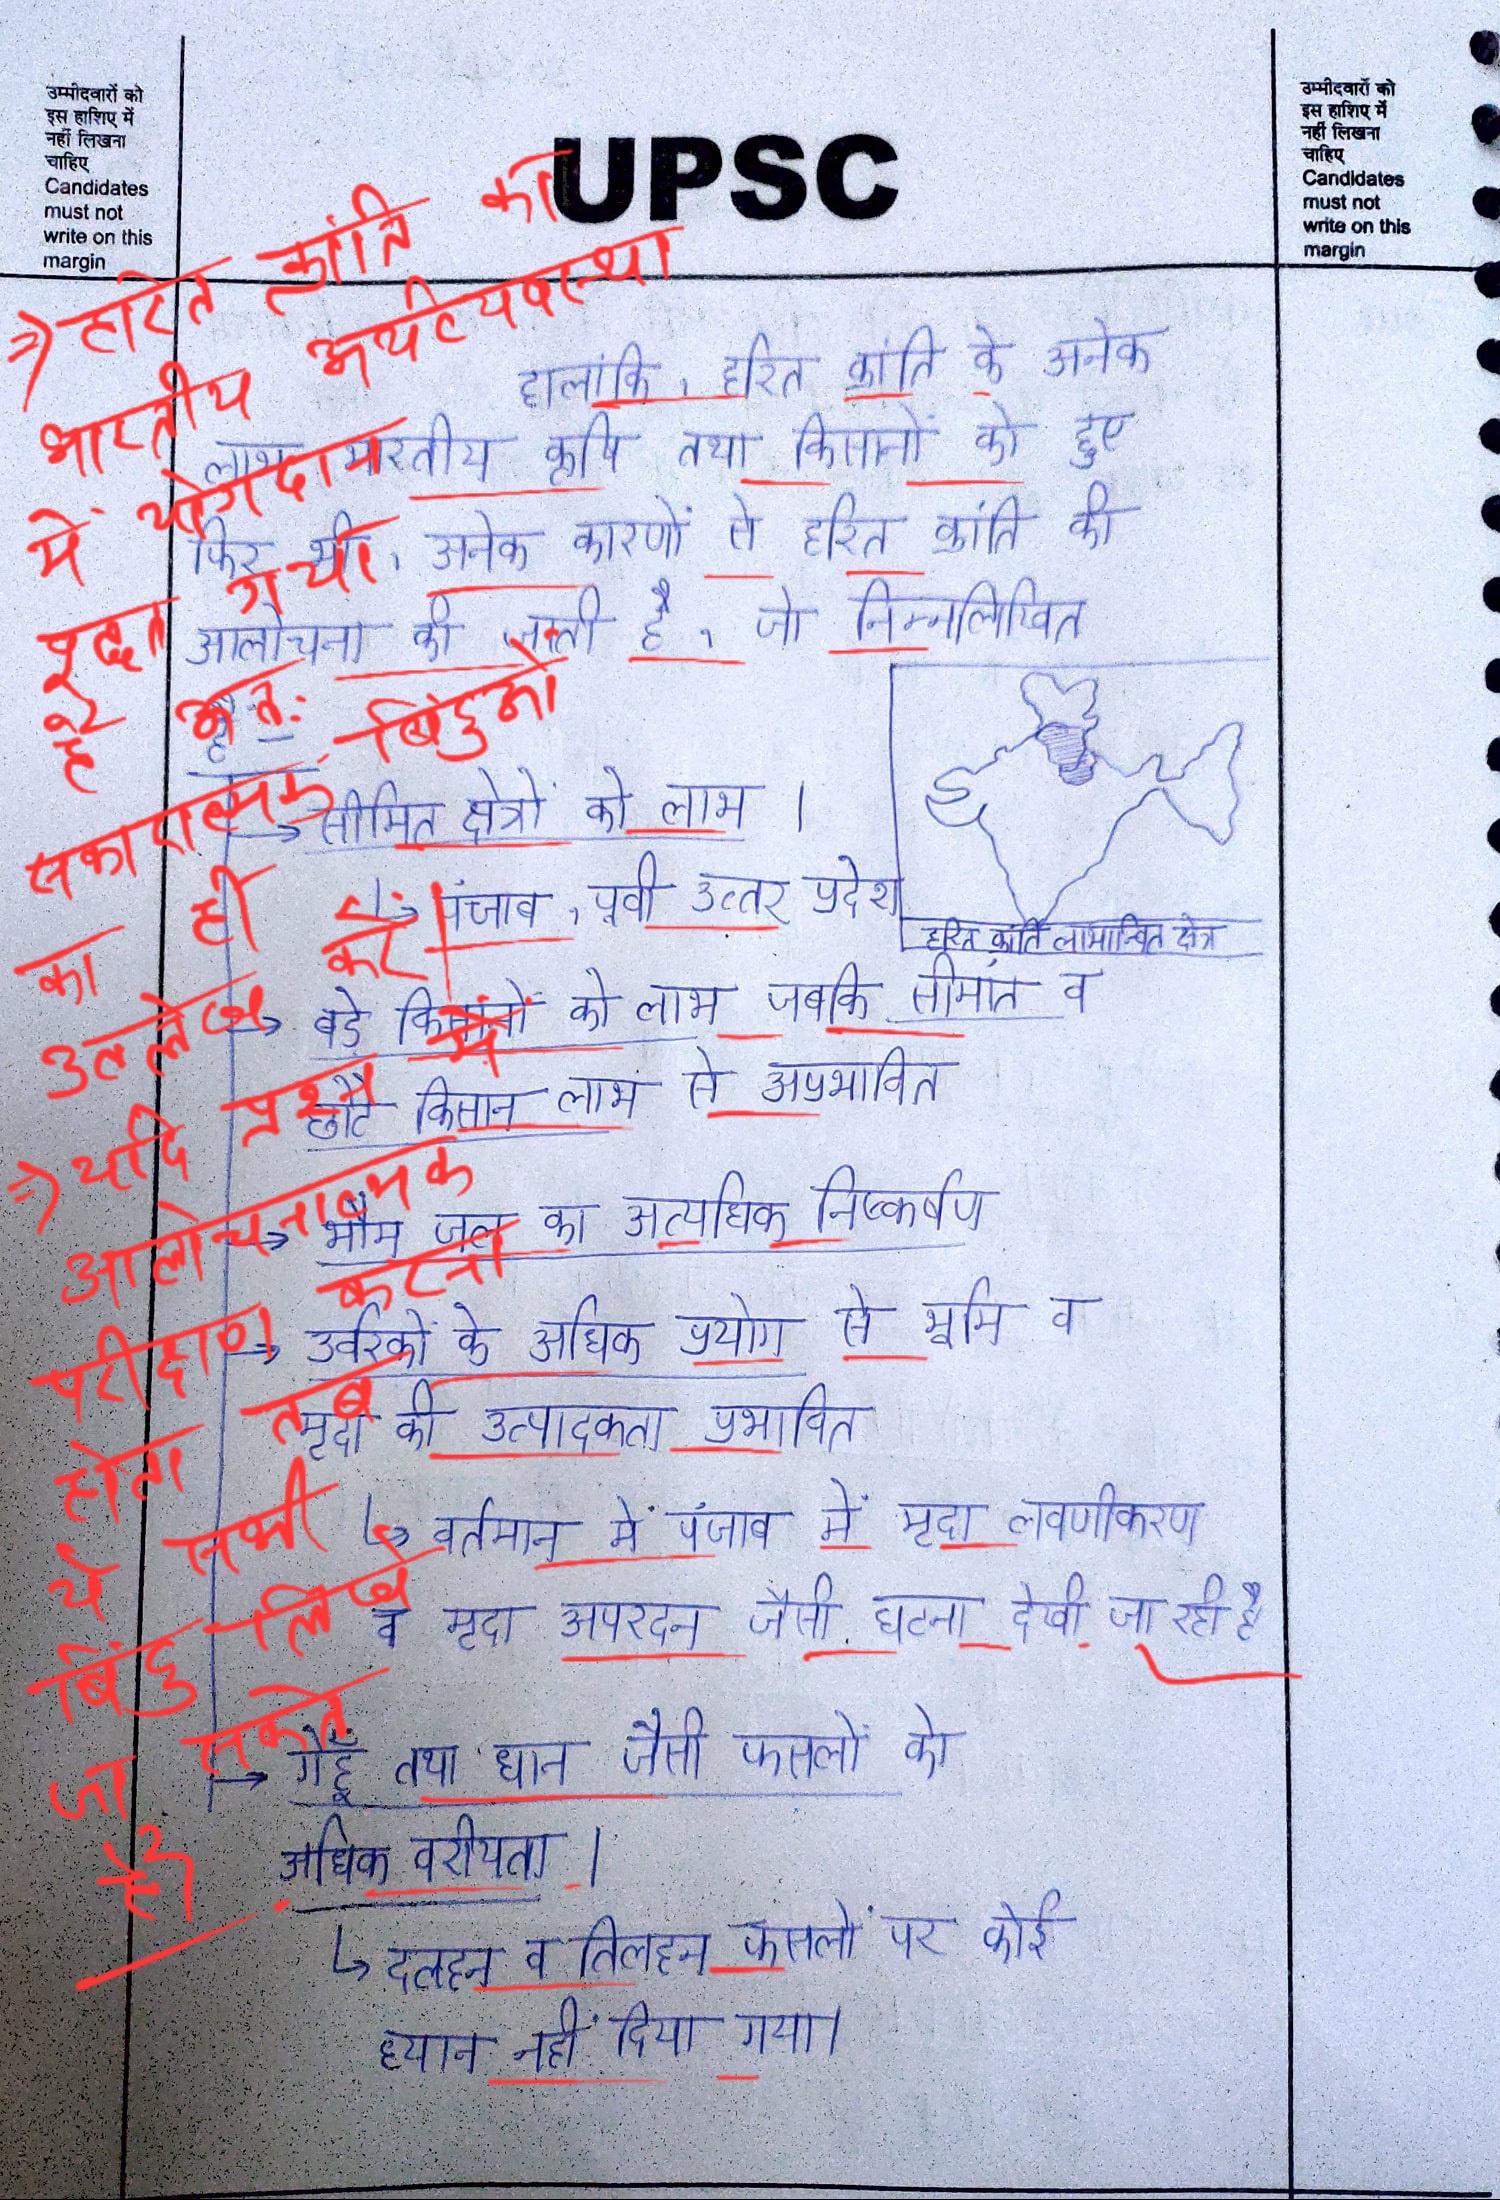 उम्मीदवारों को
इस हाशिए में
नहीं लिखना
चाहिए
Candidates
must not
write on this
margin
UPSC
उम्मीदवारों को
इस हाशिए में
नहीं लिखना
चाहिए
Candidates
must not
write on this
margin
⇒ हरित क्रांति का
भारतीय अर्थव्यवस्था
में योगदान
पूछा गया
है अत:
सकारात्मक बिंदुओं
का ही
उल्लेख करें।
⇒ यदि प्रश्न में
आलोचनात्मक
परीक्षण करना
होता तब
ये सभी
बिंदु लिखे
जा सकते
है।
हालांकि, हरित क्रांति के अनेक
लाभ भारतीय कृषि तथा किसानों को हुए
फिर भी, अनेक कारणों से हरित क्रांति की
आलोचना की जाती है, जो निम्नलिखित
है:
→ सीमित क्षेत्रों को लाभ।
↳ पंजाब, पूर्वी उत्तर प्रदेश
हरित क्रांति लाभान्वित क्षेत्र
→ बड़े किसानों को लाभ जबकि सीमांत व
छोटे किसान लाभ से अप्रभावित
→ भौम जल का अत्यधिक निष्कर्षण
→ उर्वरकों के अधिक प्रयोग से भूमि व
मृदा की उत्पादकता प्रभावित
↳ वर्तमान में पंजाब में मृदा लवणीकरण
व मृदा अपरदन जैसी घटना देखी जा रही है
→ गेहूँ तथा धान जैसी फसलों को
अधिक वरीयता।
↳ दलहन व तिलहन फसलों पर कोई
ध्यान नहीं दिया गया।